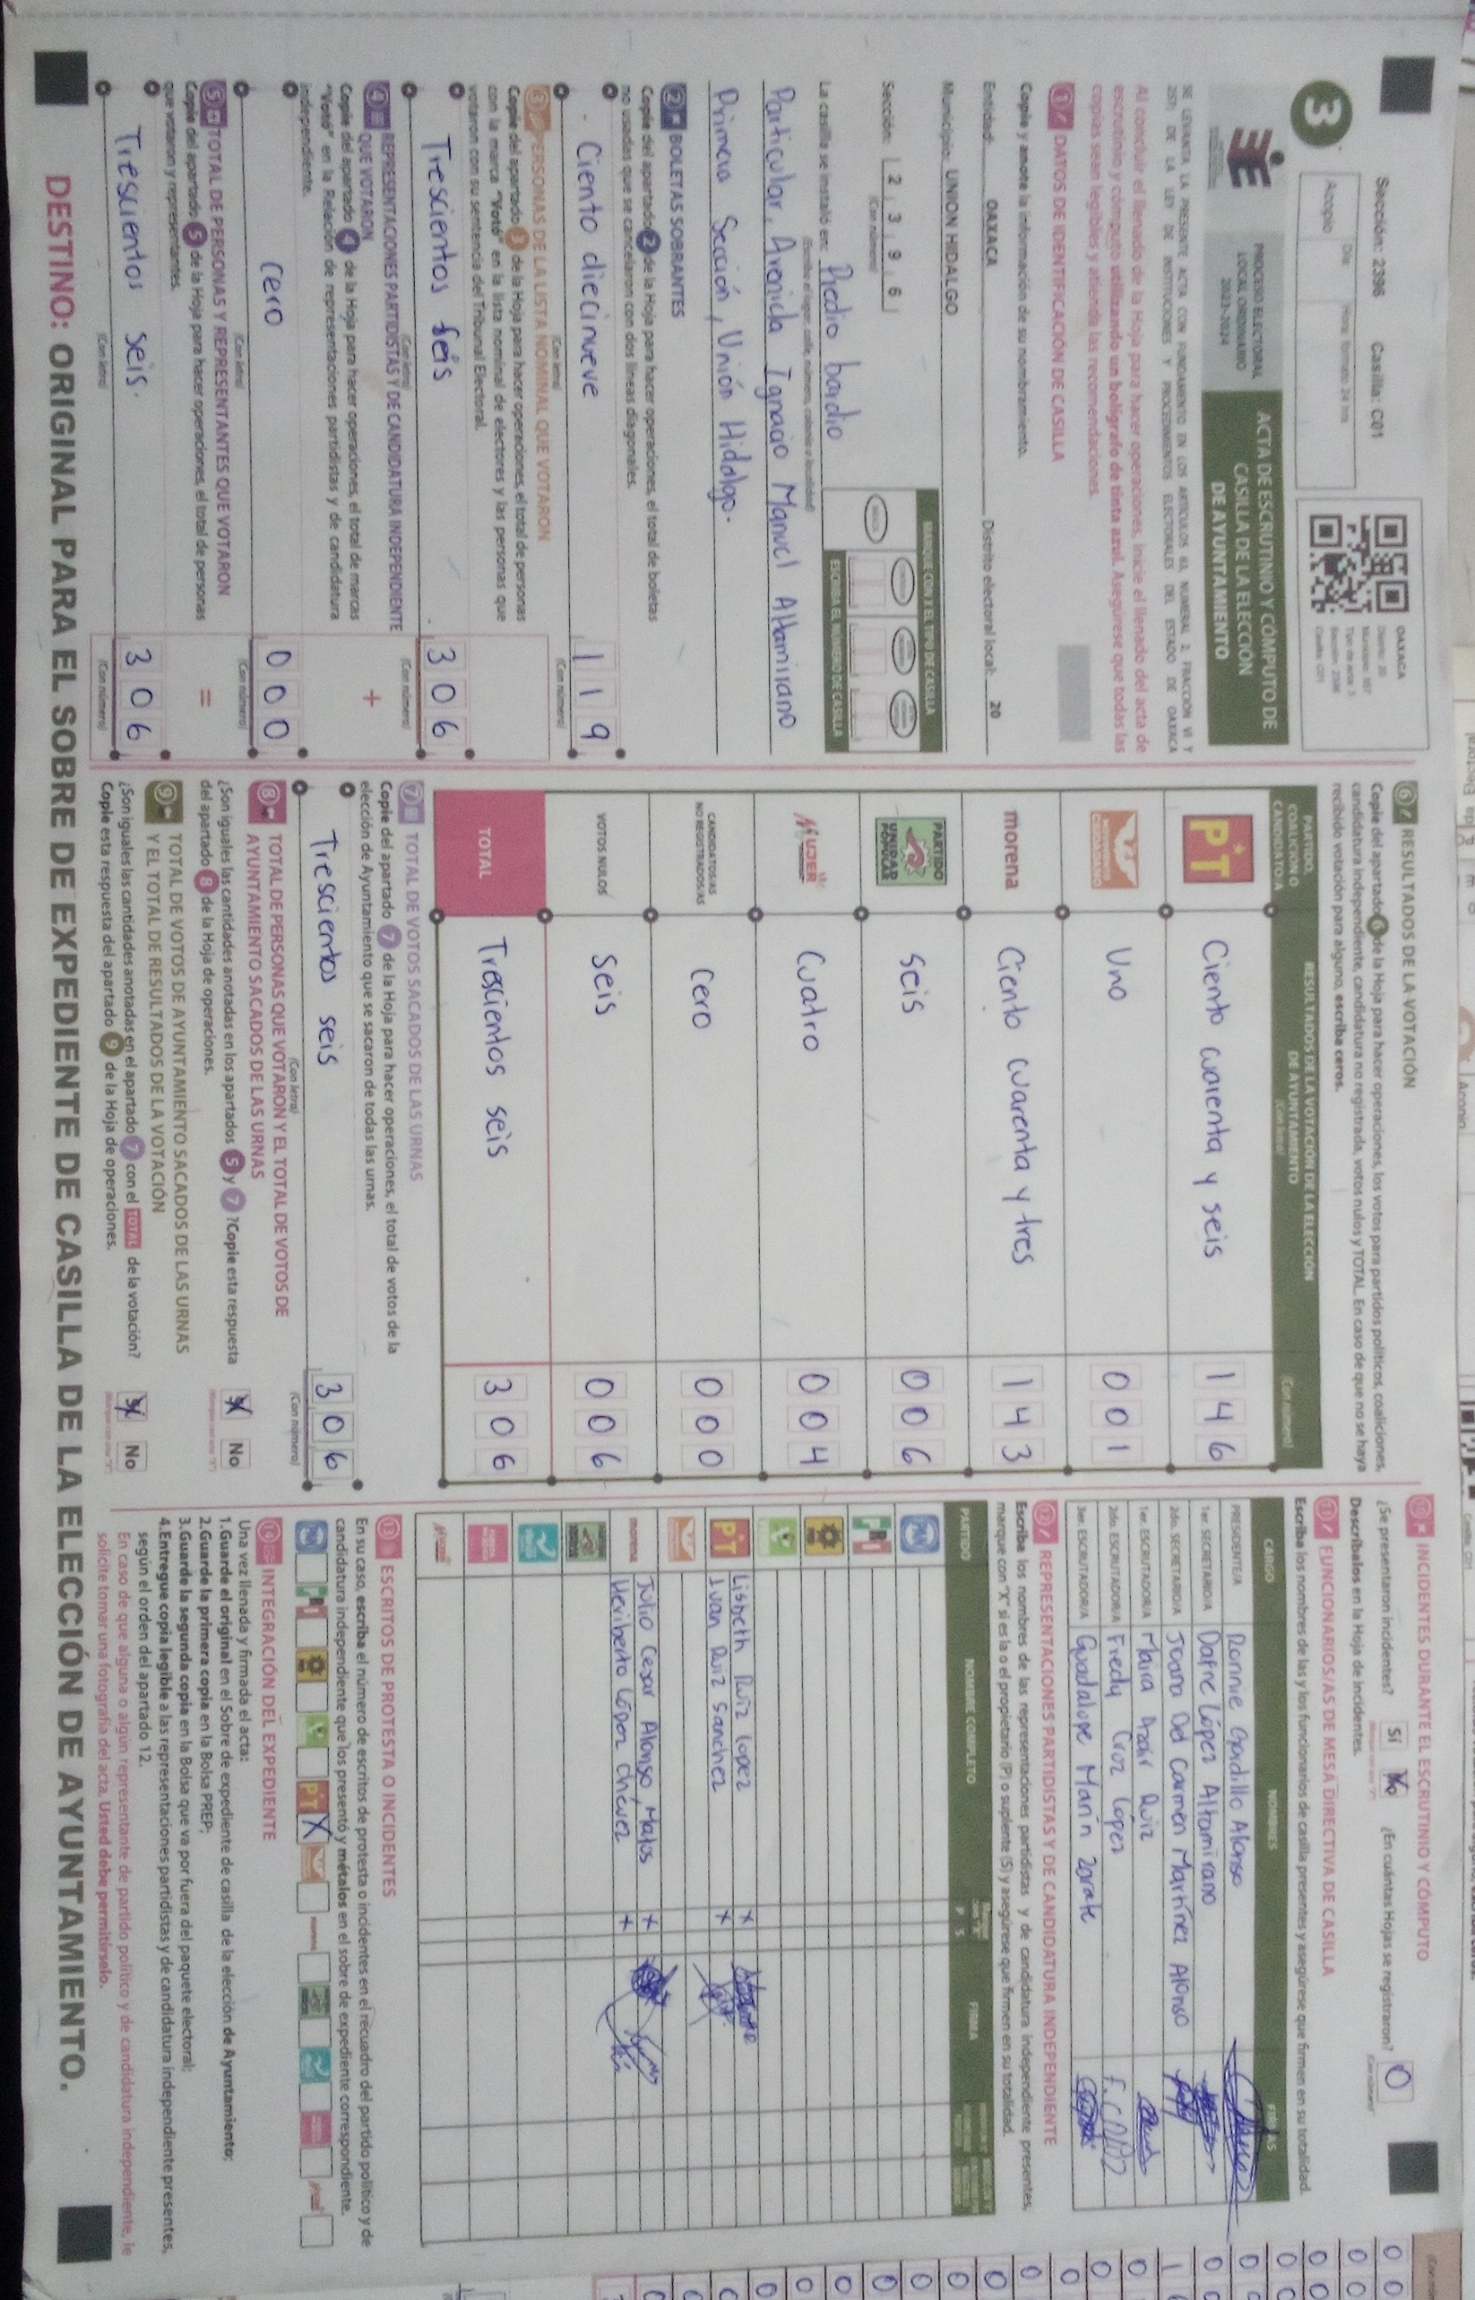 Sección: 2396 Casilla: C01
Día Hora formato 24 hrs
Acopio
3
OAXACA
PROCESO ELECTORAL
LOCAL ORDINARIO
2023-2024
ACTA DE ESCRUTINIO Y CÓMPUTO DE
CASILLA DE LA ELECCIÓN
DE AYUNTAMIENTO
SE LEVANTA LA PRESENTE ACTA CON FUNDAMENTO EN LOS ARTÍCULOS
Al concluir el llenado de la Hoja para hacer operaciones, inicie el llenado del acta de
escrutinio y cómputo utilizando un bolígrafo de tinta azul. Asegúrese que todas las
copias sean legibles y atienda las recomendaciones.
1 DATOS DE IDENTIFICACIÓN DE CASILLA
Copie y anote la información de su nombramiento.
Entidad: OAXACA Distrito electoral local: 20
Municipio: UNION HIDALGO
Sección: 2 3 9 6
(Con número)
MARQUE CON X EL TIPO DE CASILLA
ESCRIBA EL NÚMERO DE CASILLA
La casilla se instaló en: Predio baldio
(Escriba el lugar, calle, número, colonia o localidad)
Particular, Avenida Ignacio Manuel Altamirano
Primera Sección, Unión Hidalgo.
2 BOLETAS SOBRANTES
Copie del apartado 2 de la Hoja para hacer operaciones, el total de boletas
no usadas que se cancelaron con dos líneas diagonales.
Ciento diecinueve 119
(Con letra) (Con número)
3 PERSONAS DE LA LISTA NOMINAL QUE VOTARON
Copie del apartado 3 de la Hoja para hacer operaciones, el total de personas
con la marca "Votó" en la lista nominal de electores y las personas que
votaron con su sentencia del Tribunal Electoral.
Trescientos seis 306
(Con letra) (Con número)
4 REPRESENTACIONES PARTIDISTAS Y DE CANDIDATURA INDEPENDIENTE
QUE VOTARON
+
Copie del apartado 4 de la Hoja para hacer operaciones, el total de marcas
"Votó" en la Relación de representaciones partidistas y de candidatura
independiente.
cero 000
(Con letra) (Con número)
5 TOTAL DE PERSONAS Y REPRESENTANTES QUE VOTARON
=
Copie del apartado 5 de la Hoja para hacer operaciones, el total de personas
que votaron y representantes.
Trescientos seis. 306
(Con letra) (Con número)
6 RESULTADOS DE LA VOTACIÓN
Copie del apartado 6 de la Hoja para hacer operaciones, los votos para partidos políticos, coaliciones,
candidatura independiente, candidatura no registrada, votos nulos y TOTAL. En caso de que no se haya
recibido votación para alguno, escriba ceros.
PARTIDO,
COALICIÓN O
CANDIDATO/A
RESULTADOS DE LA VOTACIÓN DE LA ELECCIÓN
DE AYUNTAMIENTO
(Con letra) (Con número)
PT Ciento cuarenta y seis 146
MOVIMIENTO CIUDADANO Uno 001
morena Ciento cuarenta y tres 143
PARTIDO UNIDAD POPULAR seis 006
MUJER Cuatro 004
CANDIDATOS/AS
NO REGISTRADOS/AS Cero 000
VOTOS NULOS seis 006
TOTAL Trescientos seis 306
7 TOTAL DE VOTOS SACADOS DE LAS URNAS
Copie del apartado 7 de la Hoja para hacer operaciones, el total de votos de la
elección de Ayuntamiento que se sacaron de todas las urnas.
Trescientos seis 306
(Con letra) (Con número)
8 TOTAL DE PERSONAS QUE VOTARON Y EL TOTAL DE VOTOS DE
AYUNTAMIENTO SACADOS DE LAS URNAS
¿Son iguales las cantidades anotadas en los apartados 5 y 7 ?Copie esta respuesta
del apartado 8 de la Hoja de operaciones.
Sí No
9 TOTAL DE VOTOS DE AYUNTAMIENTO SACADOS DE LAS URNAS
Y EL TOTAL DE RESULTADOS DE LA VOTACIÓN
¿Son iguales las cantidades anotadas en el apartado 7 con el TOTAL de la votación?
Copie esta respuesta del apartado 9 de la Hoja de operaciones.
Sí No
10 INCIDENTES DURANTE EL ESCRUTINIO Y CÓMPUTO
¿Se presentaron incidentes? Sí No ¿En cuántas Hojas se registraron? 0
Descríbalos en la Hoja de incidentes.
11 FUNCIONARIOS/AS DE MESA DIRECTIVA DE CASILLA
Escriba los nombres de las y los funcionarios de casilla presentes y asegúrese que firmen en su totalidad.
CARGO NOMBRES FIRMAS
PRESIDENTE/A Ronnie Gordillo Alonso
1er. SECRETARIO/A Dafne López Altamirano
2do. SECRETARIO/A Joana Del Carmen Martínez Alonso
1er. ESCRUTADOR/A Maira Azair Ruiz
2do. ESCRUTADOR/A Fredy Cruz López
3er. ESCRUTADOR/A Guadalupe Marin Zarate
12 REPRESENTACIONES PARTIDISTAS Y DE CANDIDATURA INDEPENDIENTE
Escriba los nombres de las representaciones partidistas y de candidatura independiente presentes,
marque con "X" si es la o el propietario (P) o suplente (S) y asegúrese que firmen en su totalidad.
PARTIDO NOMBRE COMPLETO P S FIRMA
PAN
PRI
PRD
VERDE
PT Lisbeth Ruiz lopez x
Ivan Ruiz Sanchez x
morena Julio Cesar Alonso Matus x
Heriberto López Chévez x
13 ESCRITOS DE PROTESTA O INCIDENTES
En su caso, escriba el número de escritos de protesta o incidentes en el recuadro del partido político y de
candidatura independiente que los presentó y métalos en el sobre de expediente correspondiente.
14 INTEGRACIÓN DEL EXPEDIENTE
Una vez llenada y firmada el acta:
1.Guarde el original en el Sobre de expediente de casilla de la elección de Ayuntamiento;
2.Guarde la primera copia en la Bolsa PREP;
3.Guarde la segunda copia en la Bolsa que va por fuera del paquete electoral;
4.Entregue copia legible a las representaciones partidistas y de candidatura independiente presentes,
según el orden del apartado 12.
En caso de que alguna o algún representante de partido político y de candidatura independiente, le
solicite tomar una fotografía del acta, Usted debe permitírselo.
DESTINO: ORIGINAL PARA EL SOBRE DE EXPEDIENTE DE CASILLA DE LA ELECCIÓN DE AYUNTAMIENTO.